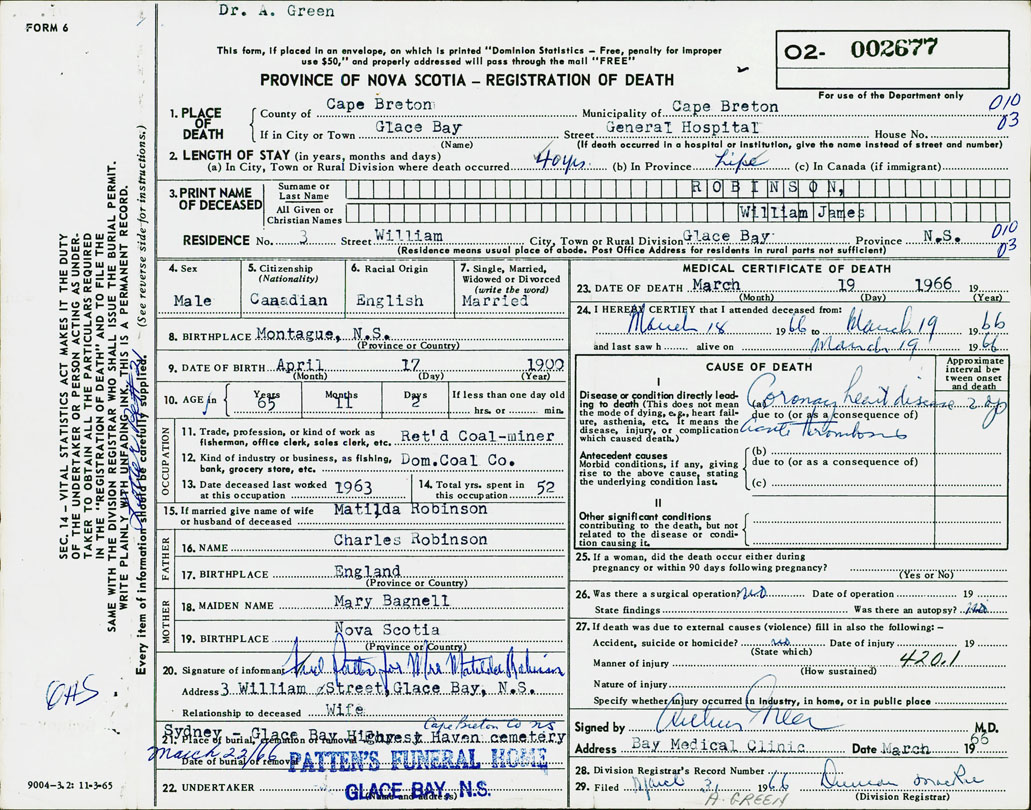 Dr. A. Green
FORM 6
This form, if placed in an envelope, on which is printed "Dominion Statistics – Free, penalty for improper
use $50," and properly addressed will pass through the mail "FREE"
PROVINCE OF NOVA SCOTIA – REGISTRATION OF DEATH
O2- 002677
For use of the Department only
010
03
1. PLACE OF DEATH
County of Cape Breton Municipality of Cape Breton
If in City or Town Glace Bay Street General Hospital House No.
(Name) (If death occurred in a hospital or institution, give the name instead of street and number)
2. LENGTH OF STAY (in years, months and days)
(a) In City, Town or Rural Division where death occurred 40 yrs. (b) In Province Life (c) In Canada (if immigrant)
3. PRINT NAME OF DECEASED
Surname or Last Name ROBINSON,
All Given or Christian Names William James
RESIDENCE No. 3 Street William City, Town or Rural Division Glace Bay Province N.S.
(Residence means usual place of abode. Post Office Address for residents in rural parts not sufficient)
010
03
4. Sex Male
5. Citizenship (Nationality) Canadian
6. Racial Origin English
7. Single, Married, Widowed or Divorced (write the word) Married
8. BIRTHPLACE Montague, N.S.
(Province or Country)
9. DATE OF BIRTH April 17 1900
(Month) (Day) (Year)
10. AGE in Years 65 Months 11 Days 2 If less than one day old
hrs. or min.
OCCUPATION
11. Trade, profession, or kind of work as fisherman, office clerk, sales clerk, etc. Ret'd Coal-miner
12. Kind of industry or business, as fishing, bank, grocery store, etc. Dom.Coal Co.
13. Date deceased last worked at this occupation 1963
14. Total yrs. spent in this occupation 52
15. If married give name of wife or husband of deceased Matilda Robinson
FATHER
16. NAME Charles Robinson
17. BIRTHPLACE England
(Province or Country)
MOTHER
18. MAIDEN NAME Mary Bagnell
19. BIRTHPLACE Nova Scotia
(Province or Country)
20. Signature of informant for Mrs Matilda Robinson
Address 3 William Street, Glace Bay, N.S.
Relationship to deceased Wife
Cape Breton Co NS
Sydney - Glace Bay Highway Haven cemetery
21. Place of burial, cremation or removal
March 22/66
Date of burial or removal
PATTEN'S FUNERAL HOME
GLACE BAY, N.S.
22. UNDERTAKER
(Name and address)
MEDICAL CERTIFICATE OF DEATH
23. DATE OF DEATH March 19 1966 19
(Month) (Day) (Year)
24. I HEREBY CERTIFY that I attended deceased from:
March 18 1966 to March 19 1966
and last saw h alive on March 19 1966
CAUSE OF DEATH
Approximate interval between onset and death
I
Disease or condition directly leading to death (This does not mean the mode of dying, e.g., heart failure, asthenia, etc. It means the disease, injury, or complication which caused death.)
(a) Coronary heart disease 2 dys
due to (or as a consequence of)
acute thrombosis
Antecedent causes
Morbid conditions, if any, giving rise to the above cause, stating the underlying condition last.
(b)
due to (or as a consequence of)
(c)
II
Other significant conditions
contributing to the death, but not related to the disease or condition causing it.
25. If a woman, did the death occur either during
pregnancy or within 90 days following pregnancy?
(Yes or No)
26. Was there a surgical operation? No Date of operation 19
State findings Was there an autopsy? No
27. If death was due to external causes (violence) fill in also the following: –
Accident, suicide or homicide? no Date of injury 19
(State which)
Manner of injury 420.1
(How sustained)
Nature of injury
Specify whether injury occurred in industry, in home, or in public place
Signed by M.D.
Address Bay Medical Clinic Date March 19 66
28. Division Registrar's Record Number
29. Filed March 31 1966 Duncan MacRae
(Division Registrar)
A. GREEN
SEC. 14 – VITAL STATISTICS ACT MAKES IT THE DUTY
OF THE UNDERTAKER OR PERSON ACTING AS UNDER-
TAKER TO OBTAIN ALL THE PARTICULARS REQUIRED
IN THE "REGISTRATION OF DEATH" AND TO FILE THE
SAME WITH THE DIVISION REGISTRAR WHO SHALL ISSUE THE BURIAL PERMIT.
WRITE PLAINLY WITH UNFADING INK. THIS IS A PERMANENT RECORD.
Every item of information should be carefully supplied. (See reverse side for instructions.)
OHS
9004-3.2: 11-3-65